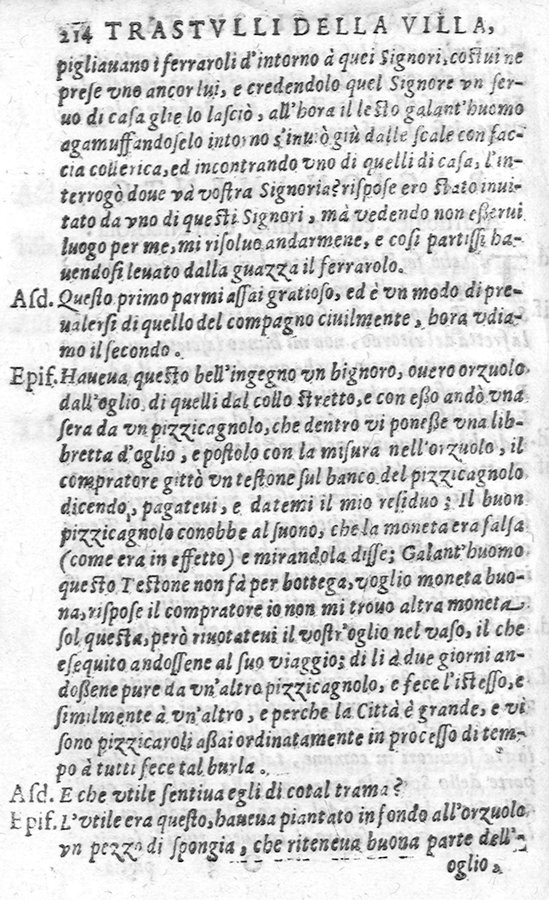 214 TRASTVLLI DELLA VILLA,
pigliauano i ferraroli d'intorno à quei Signori, costui ne
prese vno ancor lui, e credendolo quel Signore vn ser-
uo di casa glie lo lasciò, all'hora il lesto galant'huomo
agamuffandoselo intorno s'inuiò giù dalle scale con fac-
cia collerica, ed incontrando vno di quelli di casa, l'in-
terrogò doue và vostra Signoria? rispose ero stato inui-
tato da vno di questi Signori, mà vedendo non esserui
luogo per me, mi risoluo andarmene, e così partissi ha-
uendosi leuato dalla guazza il ferrarolo.
Asd. Questo primo parmi assai gratioso, ed è vn modo di pre-
ualersi di quello del compagno ciuilmente, hora vdia-
mo il secondo.
Epif. Haueua questo bell'ingegno vn bignoro, ouero orzuolo
dall'oglio di quelli dal collo stretto, e con esso andò vna
sera da vn pizzicagnolo, che dentro vi ponesse vna lib-
bretta d'oglio, e postolo con la misura nell'orzuolo, il
compratore gittò vn testone sul banco del pizzicagnolo
dicendo, pagateui, e datemi il mio residuo; Il buon
pizzicagnolo conobbe al suono, che la moneta era falsa
(come era in effetto) e mirandola disse; Galant'huomo
questo Testone non fà per bottega, voglio moneta buo-
na, rispose il compratore io non mi trouo altra moneta
sol questa, però riuotateui il vostr'oglio nel vaso, il che
esequito andossene al suo viaggio; di lì à due giorni an-
dossene pure da vn'altro pizzicagnolo, e fece l'istesso, e
similmente à vn'altro, e perche la Città è grande, e vi
sono pizzicaroli assai ordinatamente in processo di tem-
po à tutti fece tal burla.
Asd. E che vtile sentiua egli di cotal trama?
Epif. L'vtile era questo, haueua piantato in fondo all'orzuolo
vn pezzo di spongia, che riteneua buona parte dell'-
oglio,